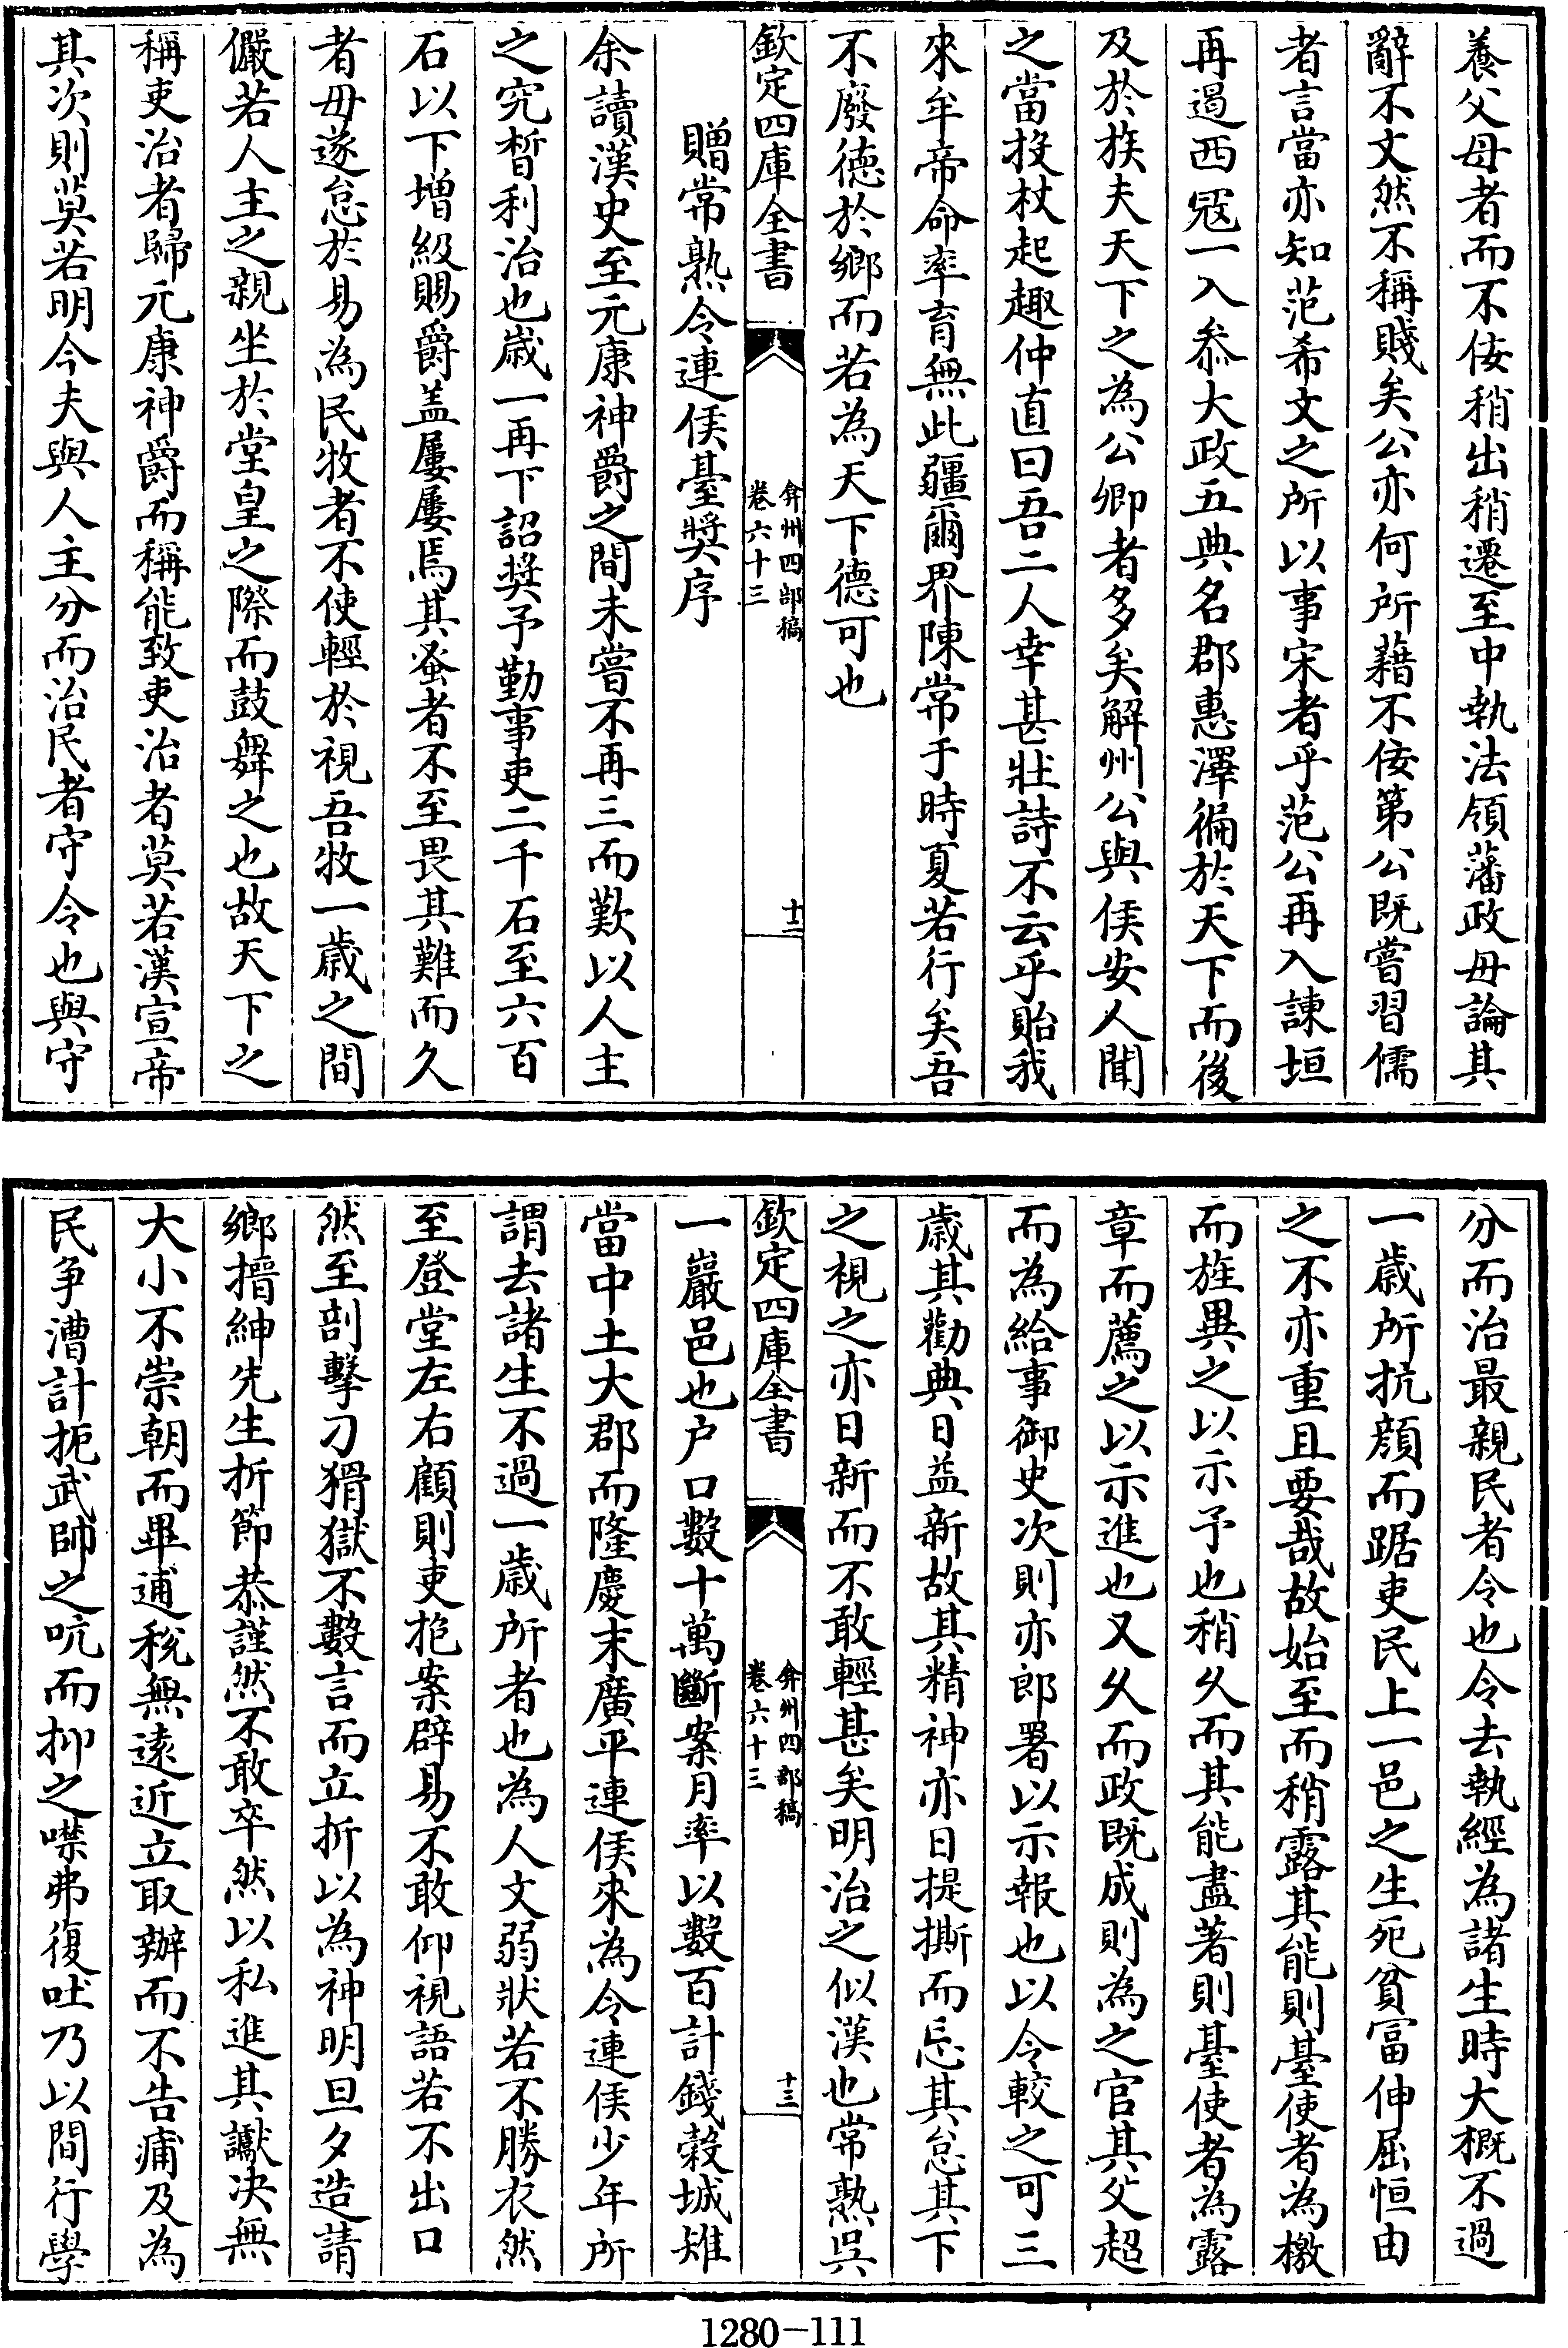 養父母者而不佞稍出稍遷至中執法領藩政毋論其
辭不文然不稱賤矣公亦何所藉不佞第公既嘗習儒
者言當亦知范希文之所以事宋者乎范公再入諫垣
再遏西冦一入叅大政五典名郡惠澤徧於天下而後
及於族夫天下之為公卿者多矣解州公與侯安人聞
之當投杖起趣仲直曰吾二人幸甚壯詩不云乎貽我
來牟帝命率育無此疆爾界陳常于時夏若行矣吾
不廢徳於鄉而若為天下德可也
欽定四庫全書
弇州四部稿
卷六十三
十二
贈常熟令連侯臺奬序
余讀漢史至元康神爵之間未嘗不再三而歎以人主
之究晳利治也歳一再下詔奨予勤事吏二千石至六百
石以下增級賜爵盖屢屢焉其蚤者不至畏其難而久
者毋遂怠於易為民牧者不使輕於視吾牧一歳之間
儼若人主之親坐於堂皇之際而鼓舞之也故天下之
稱吏治者歸元康神爵而稱能致吏治者莫若漢宣帝
其次則莫若明今夫與人主分而治民者守令也與守
分而治最親民者令也令去執經為諸生時大概不過
一歳所抗顔而踞吏民上一邑之生死貧富伸屈恒由
之不亦重且要哉故始至而稍露其能則臺使者為檄
而旌異之以示予也稍久而其能盡著則臺使者為露
章而薦之以示進也又久而政既成則為之官其父超
而為給事御史次則亦郎署以示報也以今較之可三
歳其勸典日益新故其精神亦日提撕而忘其怠其下
之視之亦日新而不敢輕甚矣明治之似漢也常熟吳
欽定四庫全書
弇州四部稿
卷六十三
十三
一巖邑也户口數十萬斷案月率以數百計錢榖城雉
當中土大郡而隆慶末廣平連侯來為令連侯少年所
謂去諸生不過一歳所者也為人文弱狀若不勝衣然
至登堂左右顧則吏抱案辟易不敢仰視語若不出口
然至剖擊刁猾獄不數言而立折以為神明旦夕造請
鄉搢紳先生折節恭謹然不敢卒然以私進其讞决無
大小不崇朝而畢逋稅無遠近立取辦而不告痡及為
民争漕計扼武帥之吭而抑之噤弗復吐乃以間行學
1280-111